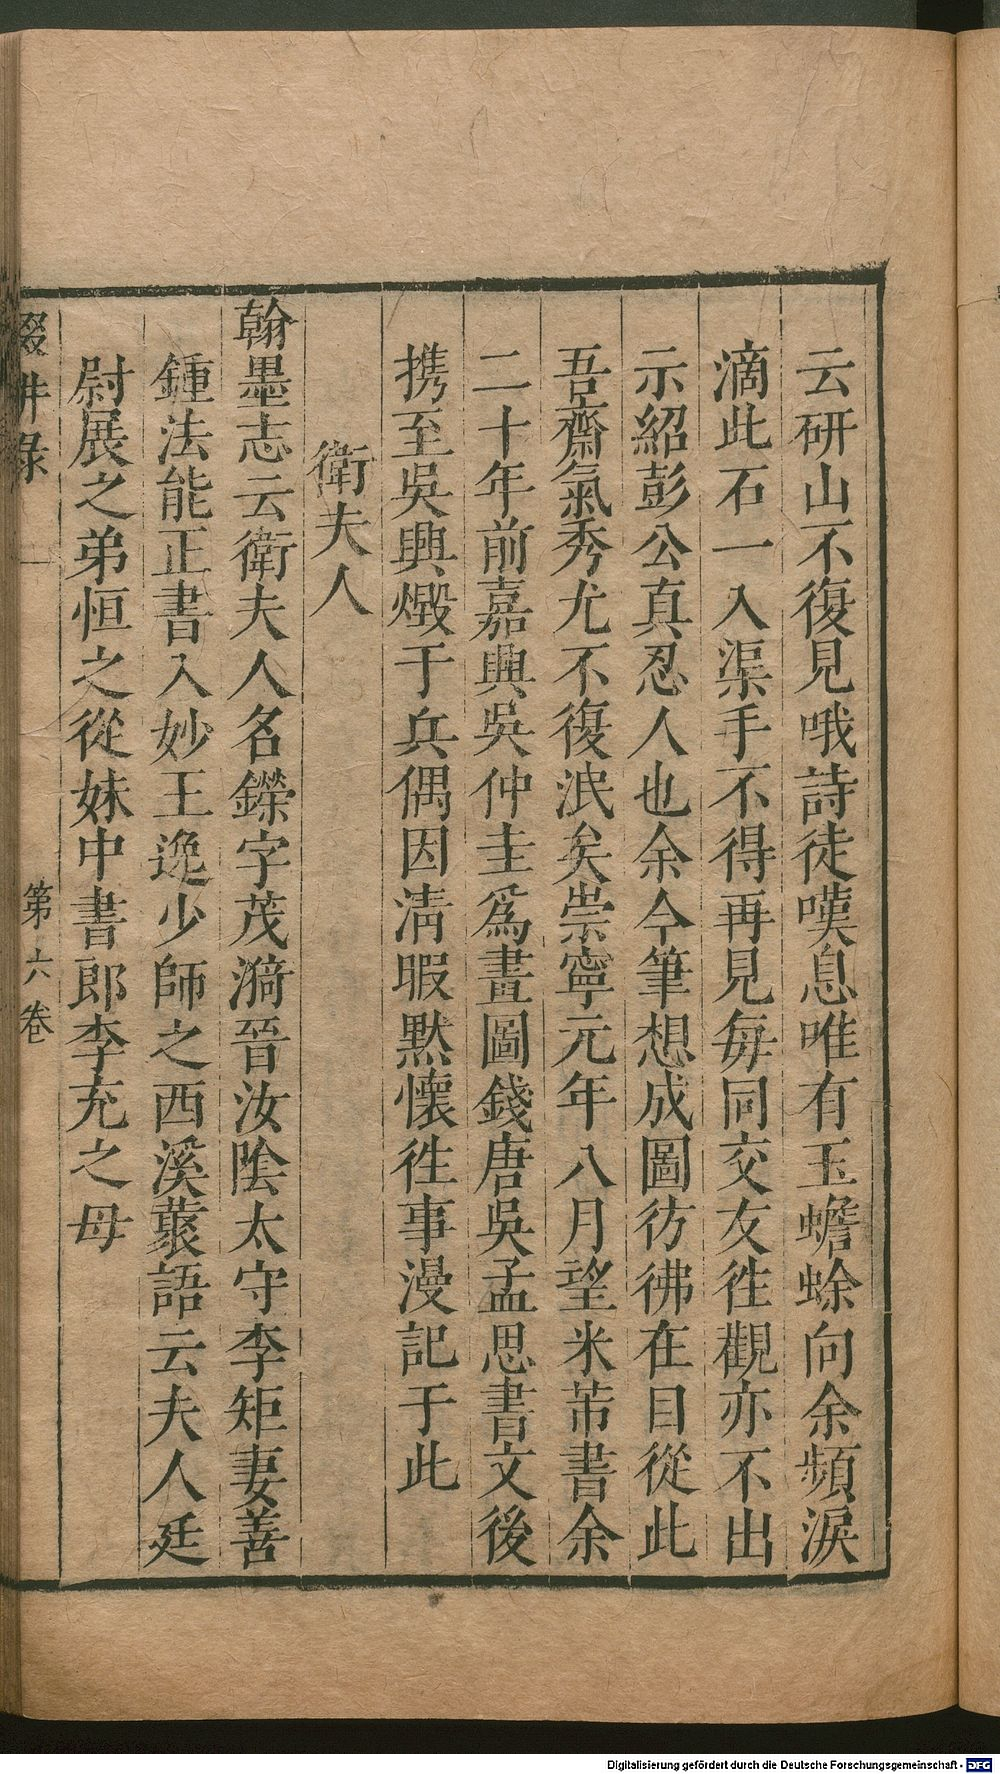 云研山不復見哦詩徒嘆息唯有玉蟾蜍向余頻淚
滴此石一入渠手不得再見每同交友徃觀亦不出
示紹彭公真忍人也余今筆想成圖彷彿在目從此
吾齋氣秀尤不復泯矣崇寧元年八月望米芾書余
二十年前嘉興吳仲圭爲畫圖錢唐吳孟思書文後
携至吳興燬于兵偶因清暇黙懷徃事漫記于此
衛夫人
翰墨志云衛夫人名鑠字茂漪晉汝陰太守李矩妻善
鍾法能正書入妙王逸少師之西溪叢語云夫人廷
尉展之弟恒之從妹中書郎李充之母
輟畊錄
第六卷
Digitalisierung gefördert durch die Deutsche Forschungsgemeinschaft - DFG